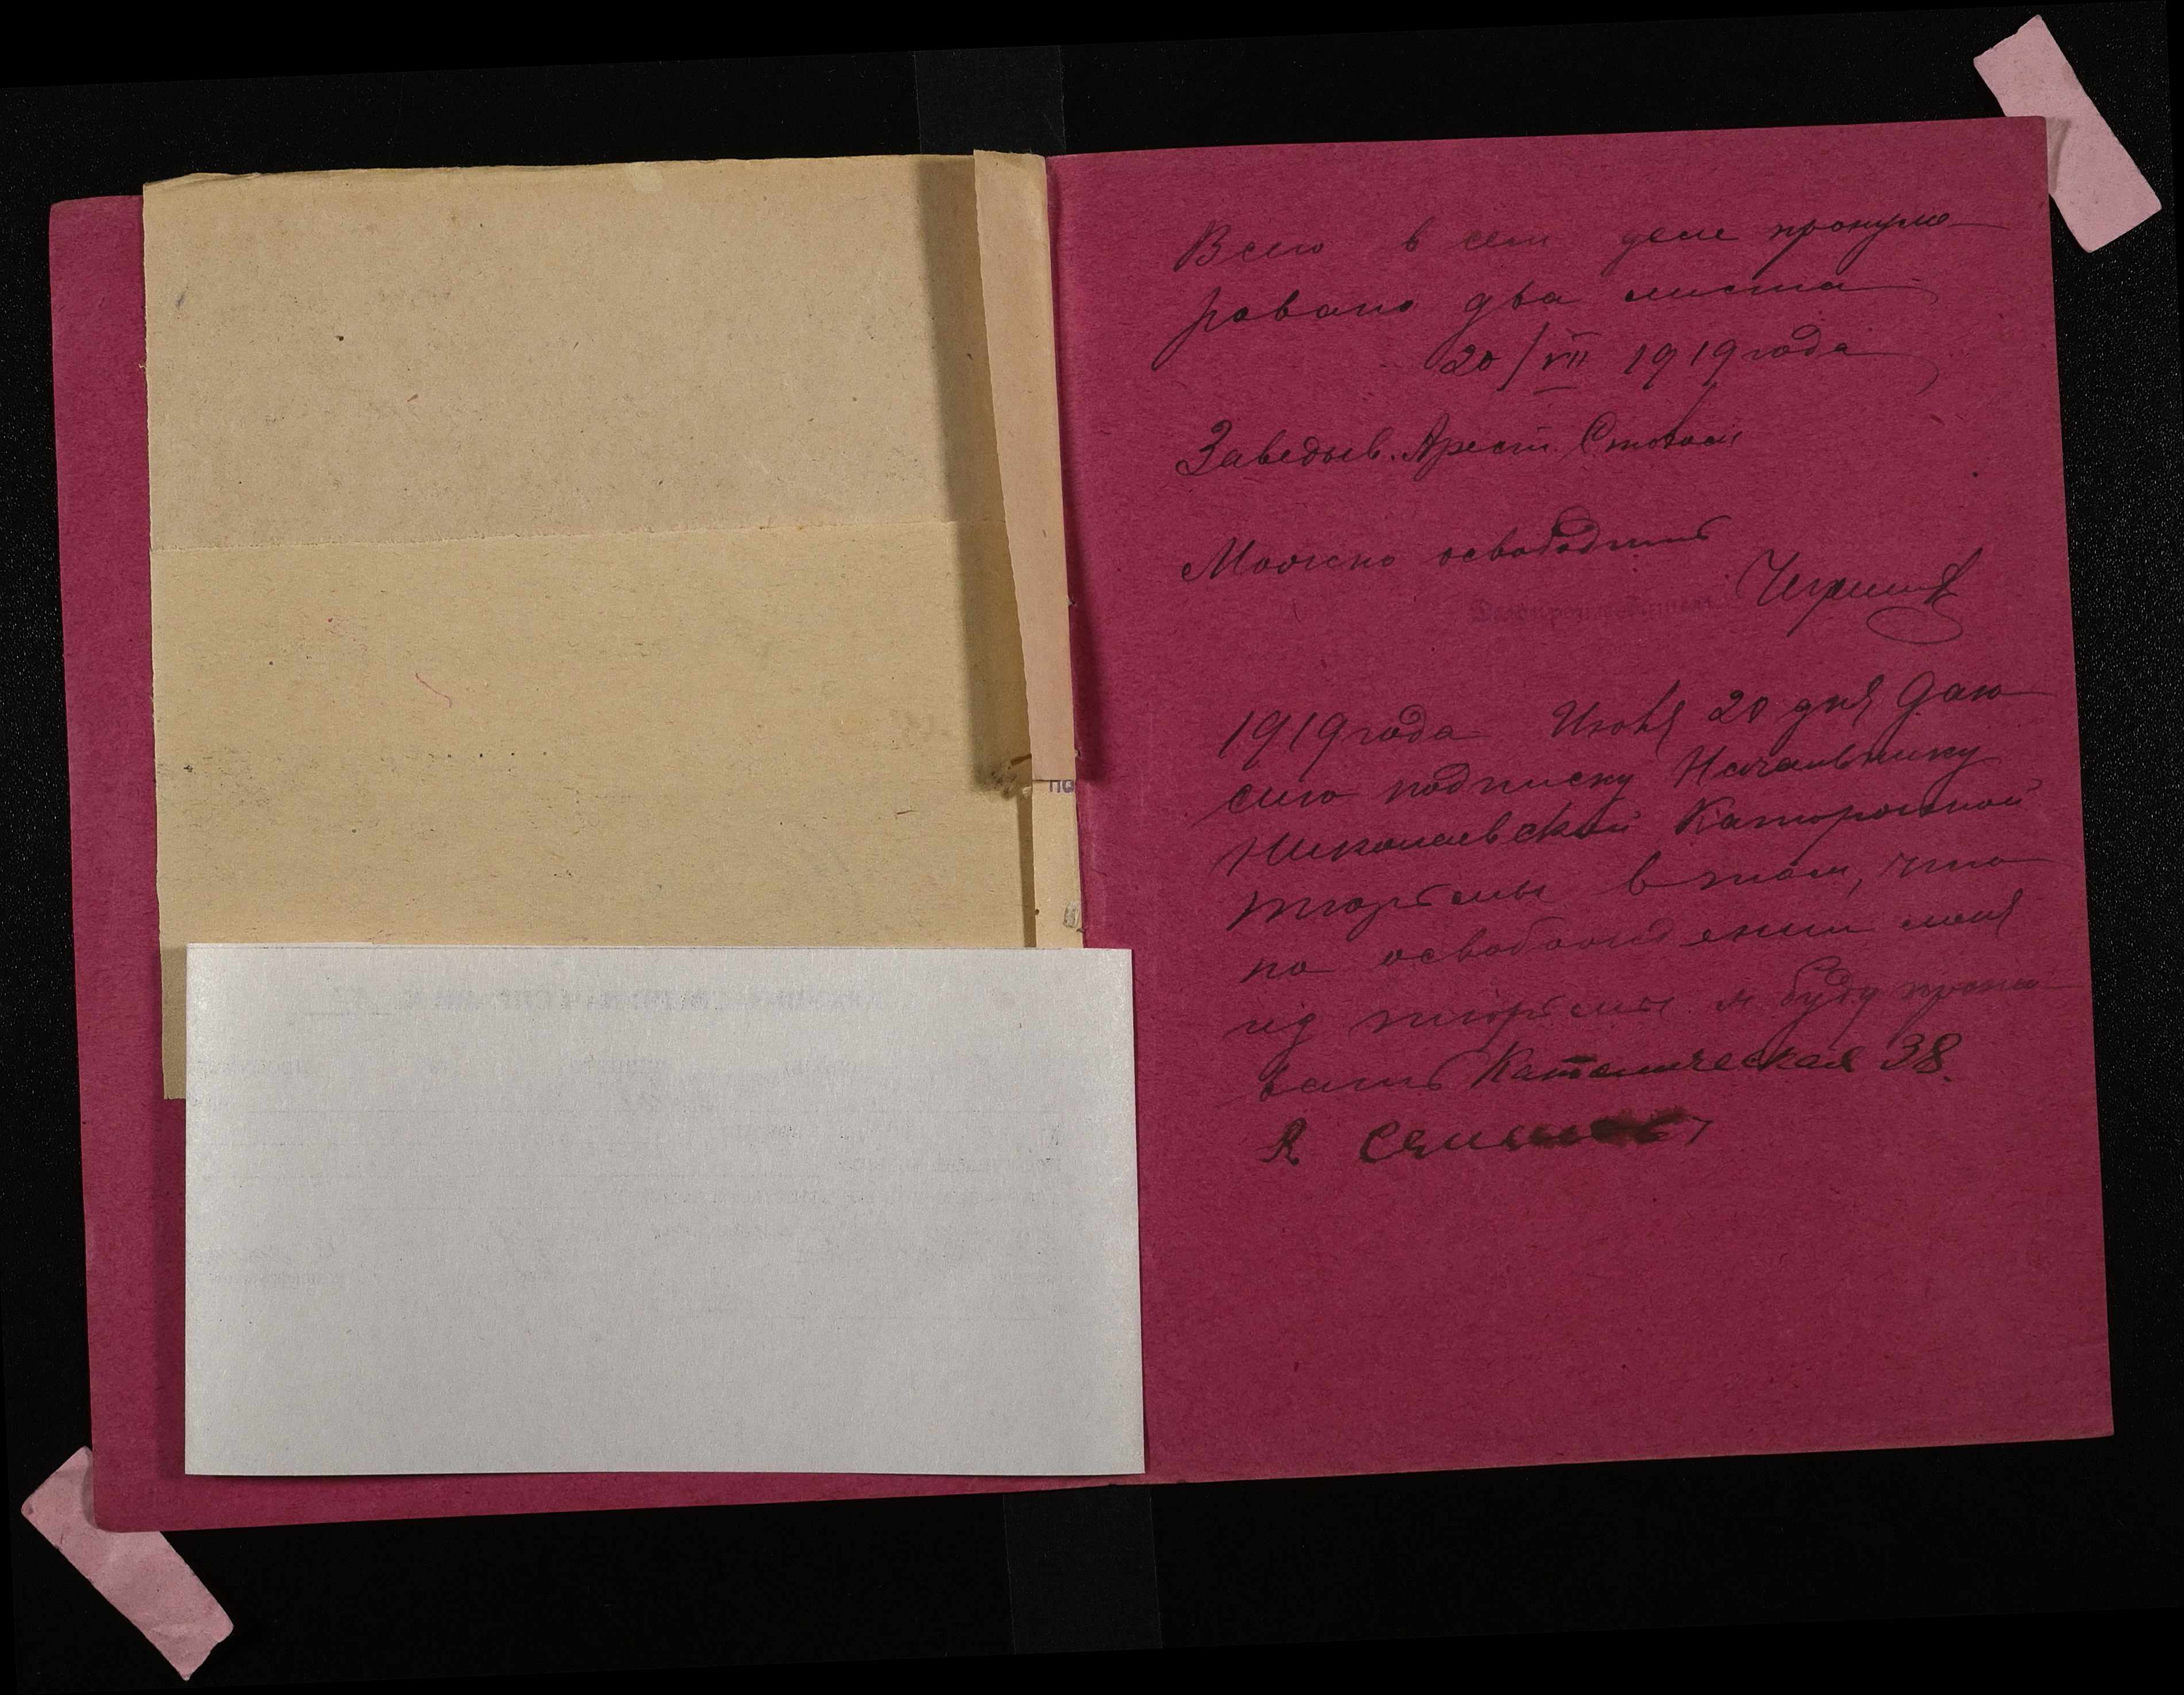 Всего в сем деле пронуме-
ровано два листа
20/VII 1919 года
Заведыв. Арест. Столом
Можно освободить
1919 года Июля 20 дня даю
сию подписку Начальнику
Николаевской Каторжной
тюрьмы в том, что
по освобождении меня
из тюрьмы я буду прожи-
вать Католическая 38.
Я